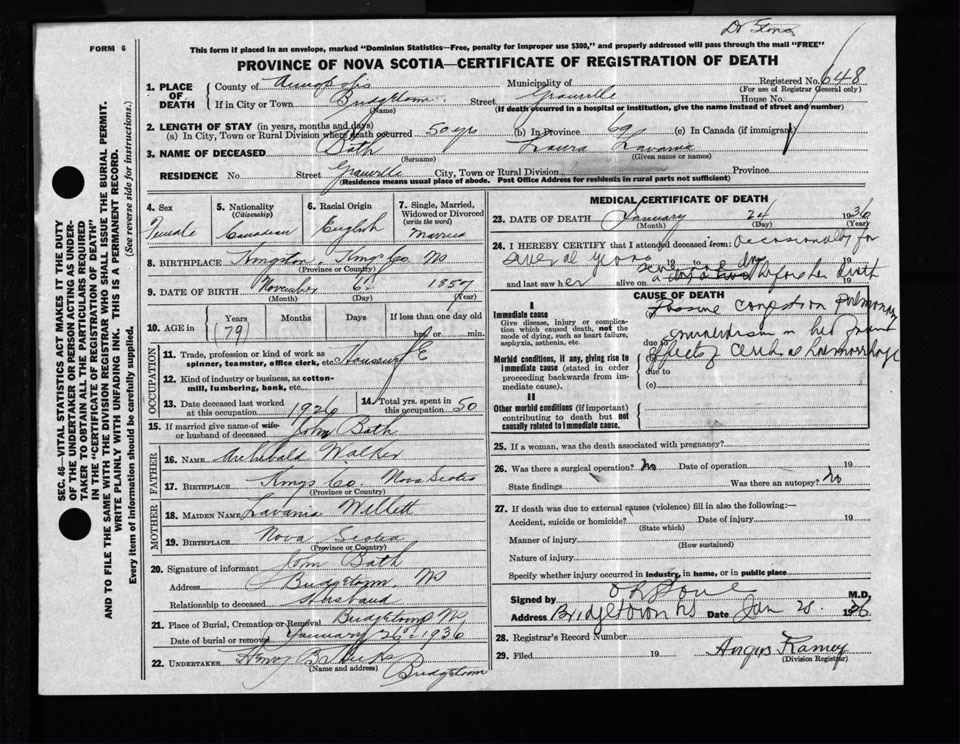 Dr Stone
FORM 6
This form if placed in an envelope, marked "Dominion Statistics—Free, penalty for improper use $300," and properly addressed will pass through the mail "FREE"
PROVINCE OF NOVA SCOTIA—CERTIFICATE OF REGISTRATION OF DEATH
SEC. 46—VITAL STATISTICS ACT MAKES IT THE DUTY
OF THE UNDERTAKER OR PERSON ACTING AS UNDER-
TAKER TO OBTAIN ALL THE PARTICULARS REQUIRED
IN THE "CERTIFICATE OF REGISTRATION OF DEATH"
AND TO FILE THE SAME WITH THE DIVISION REGISTRAR WHO SHALL ISSUE THE BURIAL PERMIT.
WRITE PLAINLY WITH UNFADING INK. THIS IS A PERMANENT RECORD.
Every item of information should be carefully supplied. (See reverse side for instructions.)
1. PLACE OF DEATH
County of Annapolis Municipality of Registered No. 648
(For use of Registrar General only)
If in City or Town Bridgetown Street Granville House No.
(Name) (If death occurred in a hospital or institution, give the name instead of street and number)
2. LENGTH OF STAY (in years, months and days)
(a) In City, Town or Rural Division where death occurred 50 yrs (b) In Province 69 (c) In Canada (if immigrant)
3. NAME OF DECEASED Bath Laura Lavania
(Surname) (Given name or names)
RESIDENCE No. Street Granville City, Town or Rural Division Province
(Residence means usual place of abode. Post Office Address for residents in rural parts not sufficient)
4. Sex
Female
5. Nationality
(Citizenship)
Canadian
6. Racial Origin
English
7. Single, Married,
Widowed or Divorced
(write the word)
Married
8. BIRTHPLACE Kingston, Kings Co. NS
(Province or Country)
9. DATE OF BIRTH November 6 1857
(Month) (Day) (Year)
10. AGE in Years Months Days If less than one day old
(79) hrs. or min.
OCCUPATION
11. Trade, profession or kind of work as
spinner, teamster, office clerk, etc. Housewife
12. Kind of industry or business, as cotton-
mill, lumbering, bank, etc.
13. Date deceased last worked
at this occupation 1926
14. Total yrs. spent in
this occupation 50
15. If married give name of wife
or husband of deceased John Bath
FATHER
16. NAME Archibald Walker
17. BIRTHPLACE Kings Co. Nova Scotia
(Province or Country)
MOTHER
18. MAIDEN NAME Lavania Willett
19. BIRTHPLACE Nova Scotia
(Province or Country)
20. Signature of informant John Bath
Address Bridgetown, NS
Relationship to deceased Husband
21. Place of Burial, Cremation or Removal Bridgetown NS
Date of burial or removal January 26 1936
22. UNDERTAKER
(Name and address)
Bridgetown
MEDICAL CERTIFICATE OF DEATH
23. DATE OF DEATH January 24 1936
(Month) (Day) (Year)
24. I HEREBY CERTIFY that I attended deceased from: occasionally for
several years 19 to 19
several days
and last saw her alive on a day or two before her death 19
CAUSE OF DEATH
I
Immediate cause
Give disease, injury or complica-
tion which caused death, not the
mode of dying, such as heart failure,
asphyxia, asthenia, etc.
Passive congestion pulmonary
due to
Morbid conditions, if any, giving rise to
immediate cause (stated in order
proceeding backwards from im-
mediate cause).
effect of cerebral haemorrhage
due to
(c)
II
Other morbid conditions (if important)
contributing to death but not
causally related to immediate cause.
25. If a woman, was the death associated with pregnancy?
26. Was there a surgical operation? No Date of operation 19
State findings Was there an autopsy? No
27. If death was due to external causes (violence) fill in also the following:—
Accident, suicide or homicide? Date of injury 19
(State which)
Manner of injury
(How sustained)
Nature of injury
Specify whether injury occurred in industry, in home, or in public place
Signed by M.D.
Address Bridgetown NS Date Jan 28 1936
28. Registrar's Record Number
29. Filed 19 Angus Ramey
(Division Registrar)